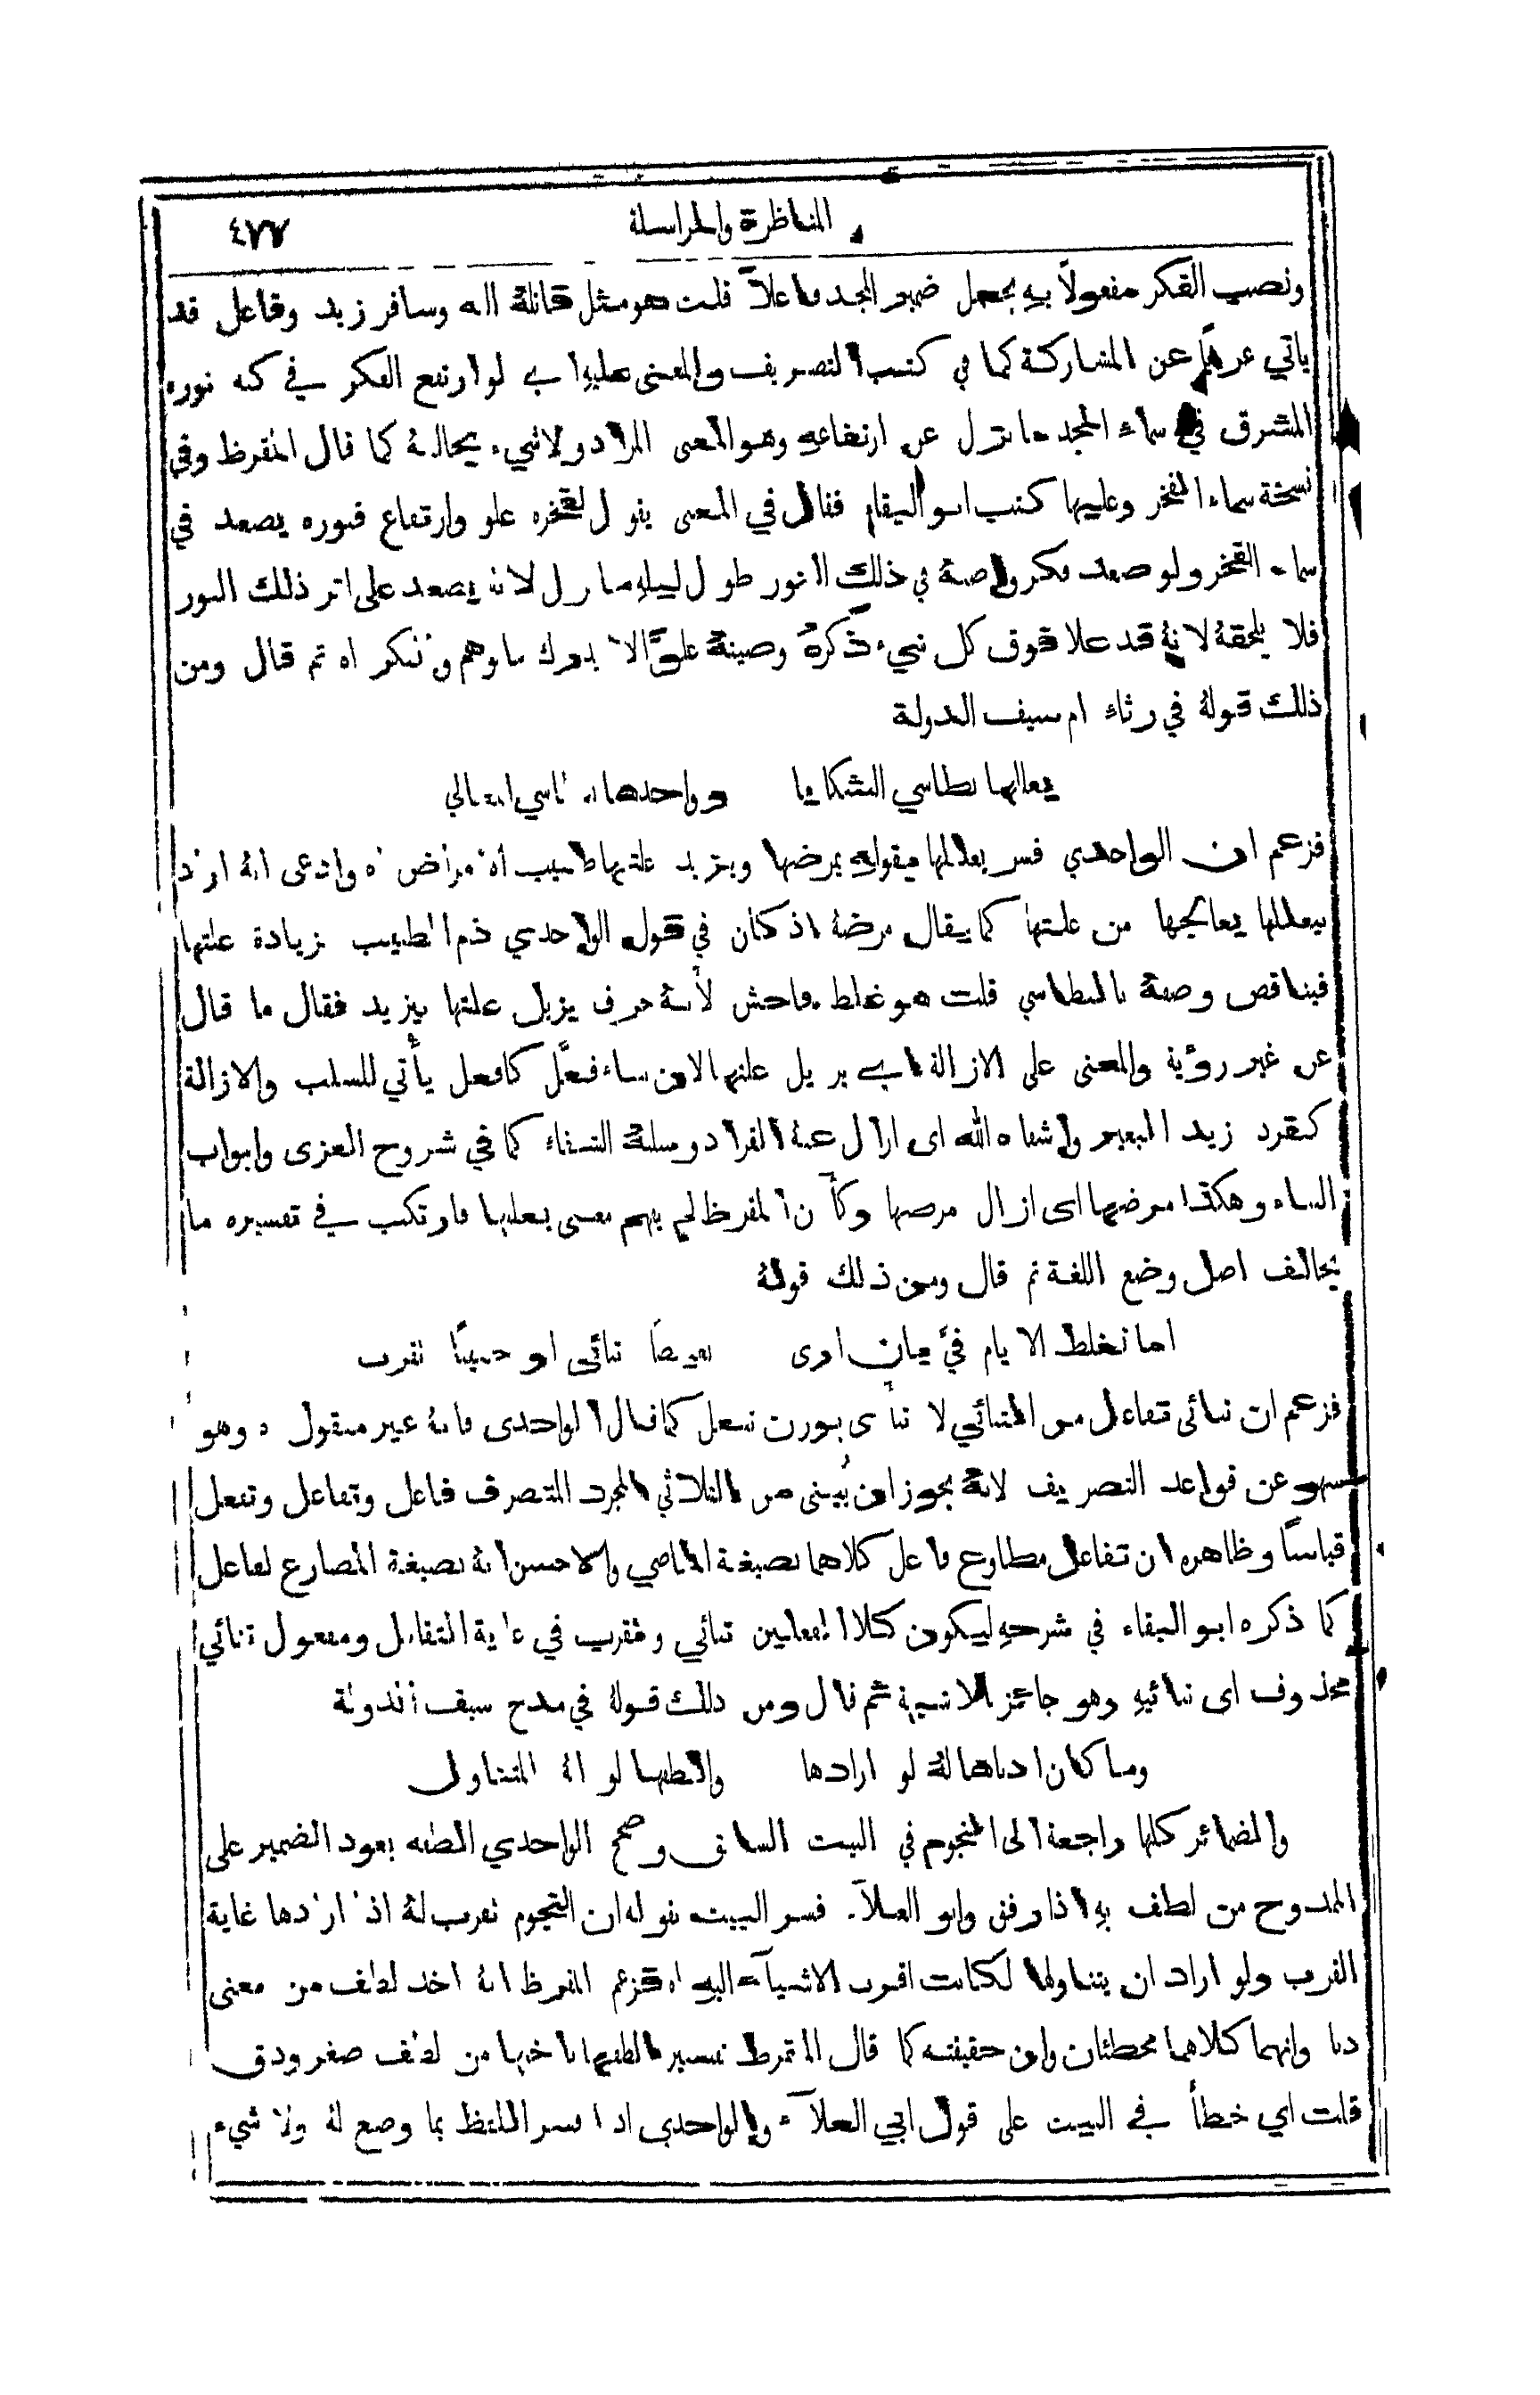 المناظرة والمراسلة ٤٧٧
ونصب الفكر مفعولاً به بجعل ضمير المجد فاعلاً قلت هو مثل قاتلهُ الله وسافر زيد وفاعل قد
ياتي عن المشاركة كما في كتب التصريف والمعنى عليهِ اي لو ارتفع الفكر في كنه نوره
المشرق في سماء المجد ما نزل عن ارتفاعهِ وهو المعنى المراد ولا شيء يحالهُ كما قال المقرظ وفي
نسخة سماء الفخر وعليها كتب ابو البقاء فقال في المعنى يقول لفخره علو وارتفاع فنوره يصعد في
سماء الفخر ولو صعد فكر واصفهِ في ذلك النور طول ليلهِ ما زل لانه يصعد على اثر ذلك النور
فلا يلحقهُ لانهُ قد علا فوق كل شيء ذكرهُ وصيتهُ علوًّا لا يدرك بوهم وفكر اه ثم قال ومن
ذلك قولهُ في رثاء ام سيف الدولة
يعللها نطاسي الشكايا وواحدها نطاسي المعالي
فزعم ان الواحدي فسر يعللها بقولهِ يمرضها ويزيد علتها طبيب الامراض وادعى انهُ اراد
بيعللها يعالجها من علتها كما يقال مرضهُ اذ كان في قول الواحدي ذم الطبيب بزيادة علتها
فيناقض وصفهُ بالنطاسي قلت هو غلط فاحش لأنهُ حرف يزيل علتها بيزيد فقال ما قال
عن غير رؤية والمعنى على الازالة اي يزيل علتها لان بناء فعَّل كافعل يأتي للسلب والازالة
كقرد زيد البعير واشفاه الله اي ازال عنهُ القراد وسلبهُ الشفاء كما في شروح العزى وابواب
البناء وهكذا مرضها اى ازال مرضها وكأن المقرظ لم يفهم معنى يعللها فارتكب في تفسيره ما
يخالف اصل وضع اللغة ثم قال ومن ذلك قولهُ
اما تغلط الايام فيَّ بان ارى بغيضًا تنائى او حبيبًا تقرب
فزعم ان تنائى تفاعل من التنائي لا تنأى بوزن تفعل كما قال الواحدى فانهُ غير منقول وهو
سهو عن قواعد التصريف لانهُ يجوز ان يُبنى من الثلاثي المجرد المتصرف فاعل وتفاعل وتفعل
قياسًا وظاهره ان تفاعل مطاوع فاعل كلاهما بصيغة الماضي والاحسن انهُ بصيغة المضارع لفاعل
كما ذكره ابو البقاء في شرحهِ ليكون كلا الفعلين تنائي وتقرب في غاية التقابل ومفعول تنائي
محذوف اى تنائيهِ وهو جائز بلا شبهة ثم قال ومن ذلك قولهُ في مدح سيف الدولة
وما كان ادناها لهُ لو ارادها والطفها لو انهُ المتناول
والضمائر كلها راجعة الى النجوم في البيت السابق وصحح الواحدي الطفه بعود الضمير على
الممدوح من لطف بهِ اذا رفق وابو العلآء فسر البيت بقوله ان النجوم تقرب لهُ اذا ارادها غاية
القرب ولو اراد ان يتناولها لكانت اقرب الاشيآء اليهِ اه فزعم المقرظ انهُ اخذ لطف من معنى
دنا وانهما كلاهما مخطئان وان حقيقته كما قال المقرظ تفسير الطفها باخذها من لطف صغر ودق
قلت اي خطأ في البيت على قول ابي العلآء والواحدى اذا فسر اللفظ بما وضع لهُ ولا شيء